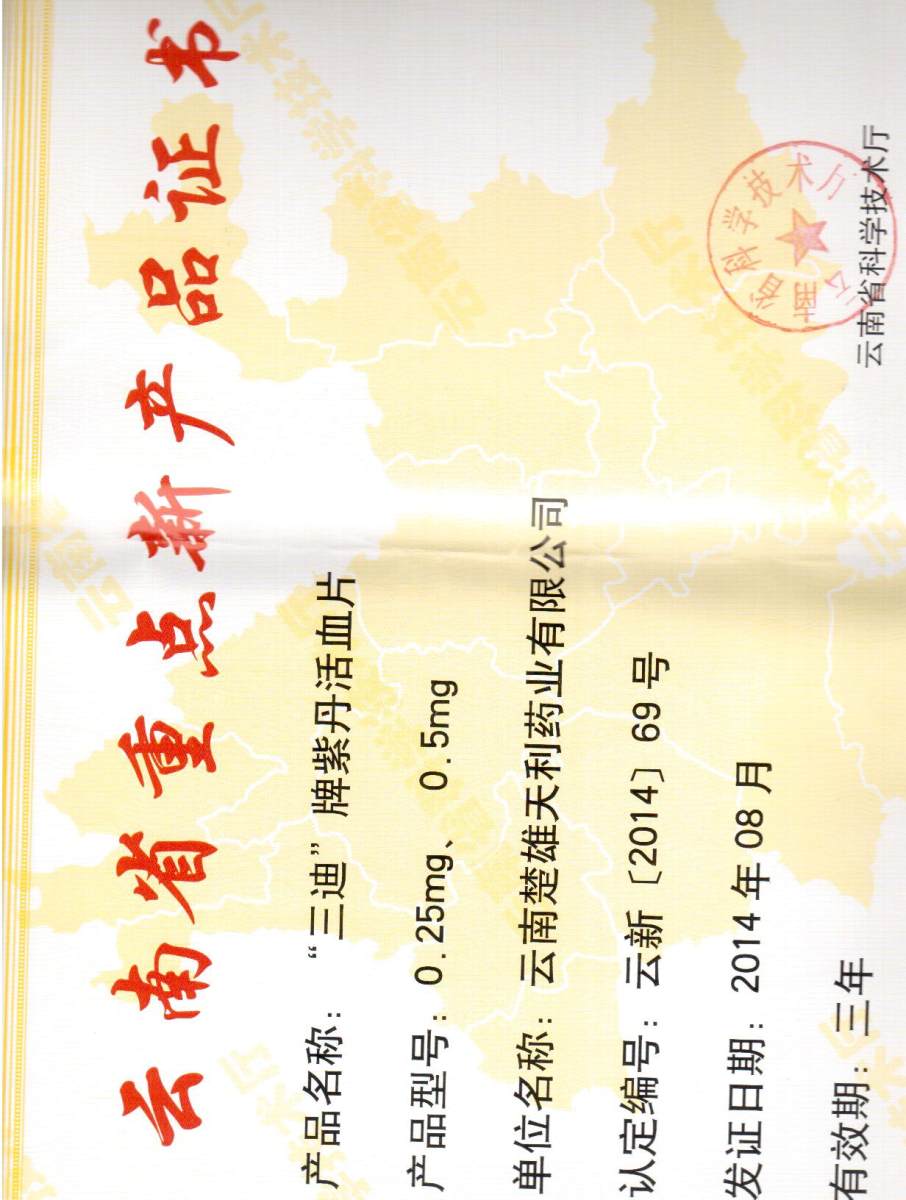 云南省重点新产品证书
产品名称：“三迪”牌紫丹活血片
产品型号：0.25mg、 0.5mg
单位名称：云南楚雄天利药业有限公司
认定编号：云新〔2014〕69号
发证日期：2014年08月
有效期：三年
云南省科学技术厅
云南省科学技术厅